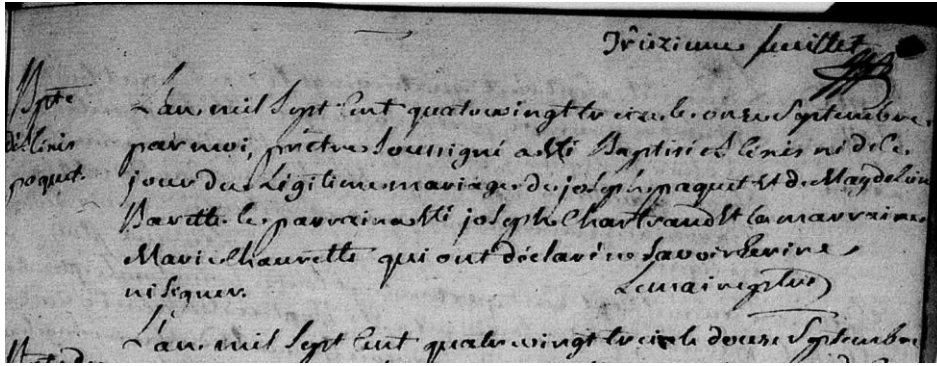 Treizieme feuillet
Bpte
d'elinis
poquet.
L'an mil sept Cent quatrevingt treize le onze Septembre
par moi, prêtre Soussigné a été Baptisé Elinis né de ce
jour du Légitime mariage de joseph paquet et de Magdelein
Barette le parrain a été joseph Chartrand et la marraine
Marie Chaurette qui ont déclaré ne Savoir Ecrire
ni Signer.
Lemaire ptre
L'an mil Sept Cent quatrevingt treize le douze Septembre